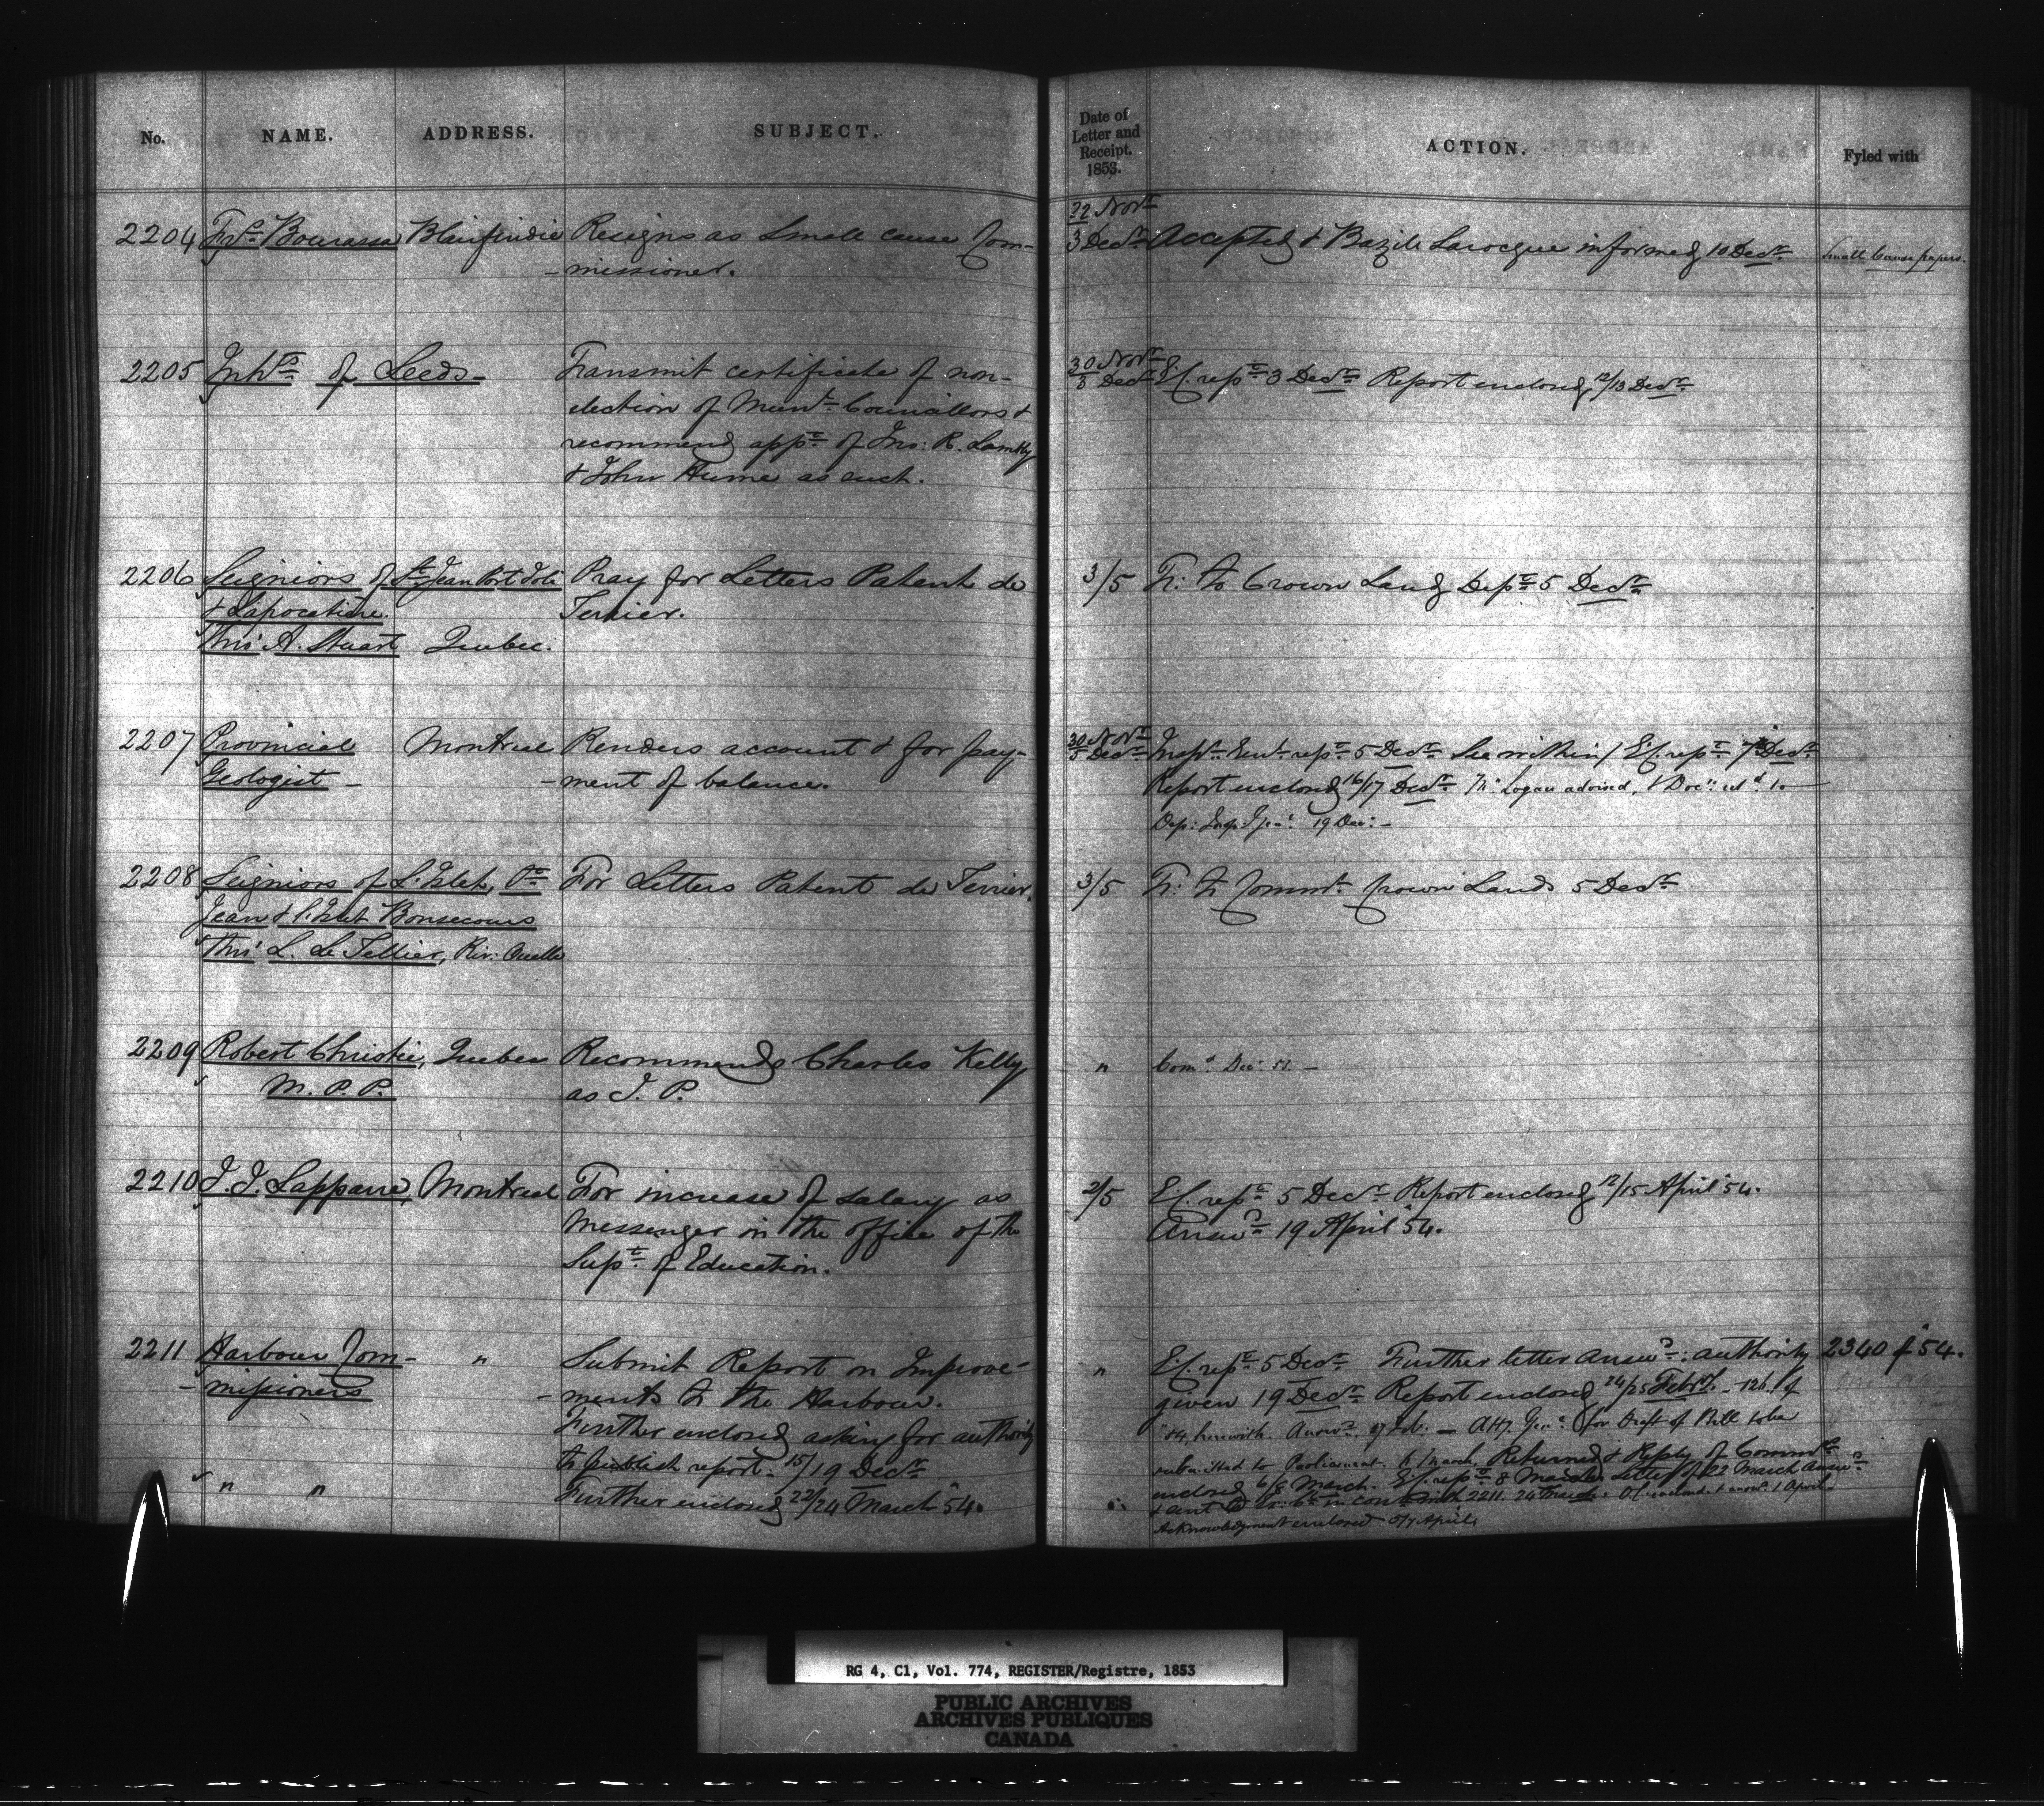 No. NAME. ADDRESS. SUBJECT.
Date of Letter and Receipt. 1853. ACTION. Fyled with
2204 Frs. Bourassa Blairfindie Resigns as Small cause Com-
-missioner.
22 Novr.
3 Decr. Accepted & Bazile Larocque informed 10 Decr. Small Cause papers.
2205 Inhts. of Leeds Transmit certificate of non-
election of Munl. Councillors &
recommend appt. of Jno: R. Lambly
& John Hume as such.
30 Novr.
3 Decr. E.C. rept. 3 Decr. Report enclosed 12/13 Decr.
2206 Seigniors of St. Jean Port Joli Pray for Letters Patent de
& Lapocatiere Terrier.
Thro' A. Stuart Quebec.
3/5 Tr: to Crown Land Dept. 5 Decr.
2207 Provincial Montreal Renders account & for pay-
Geologist - -ment of balance.
30 Novr.
5 Decr. Inspr. Genl. rept. 5 Decr. See within / E.C. rept. 7 Decr.
Report enclosed 16/17 Decr. Mr. Logan advised, & Doc: to
Dep: Insp: Genl. 19 Dec: -
2208 Seigniors of L'Islet, St. For Letters Patent de Terrier.
Jean & l'Islet Bonsecours
Thro' L. Le Tellier, Riv: Ouelle
3/5 Tr: to Commr. Crown Lands 5 Decr.
2209 Robert Christie, Quebec Recommends Charles Kelly
M.P.P. as J.P.
" Comd. Decr.
2210 J. J. Lapparre, Montreal For increase of salary as
Messenger in the office of the
Supt. of Education.
2/5 E.C. rept. 5 Decr. Report enclosed 12/15 April '54.
Answd. 19 April '54.
2211 Harbour Com- " Submit Report on Improve-
-missioners -ments to the Harbour.
Further enclosed asking for authority
to publish report. 15/19 Decr.
" " Further enclosed 22/24 March '54.
" E.C. rept. 5 Decr. Further letter answd.: authority 2340 of '54.
given 19 Decr. Report enclosed 24/25 Febry. - 126 of
'54, herewith. Answd. 27 Feb. - Atty. Genl. for Draft of Bill to be
submitted to Parliament. 6 March. Returned & Reply of Commrs.
enclosed 6/8 March. E.C. rept. 8 March. Letter of 22 March answd.
& in con with 2211. 24 March. O.C. & answd. 1 April.
Acknowledgment enclosed 5/7 April.
RG 4, C1, Vol. 774, REGISTER/Registre, 1853
PUBLIC ARCHIVES
ARCHIVES PUBLIQUES
CANADA